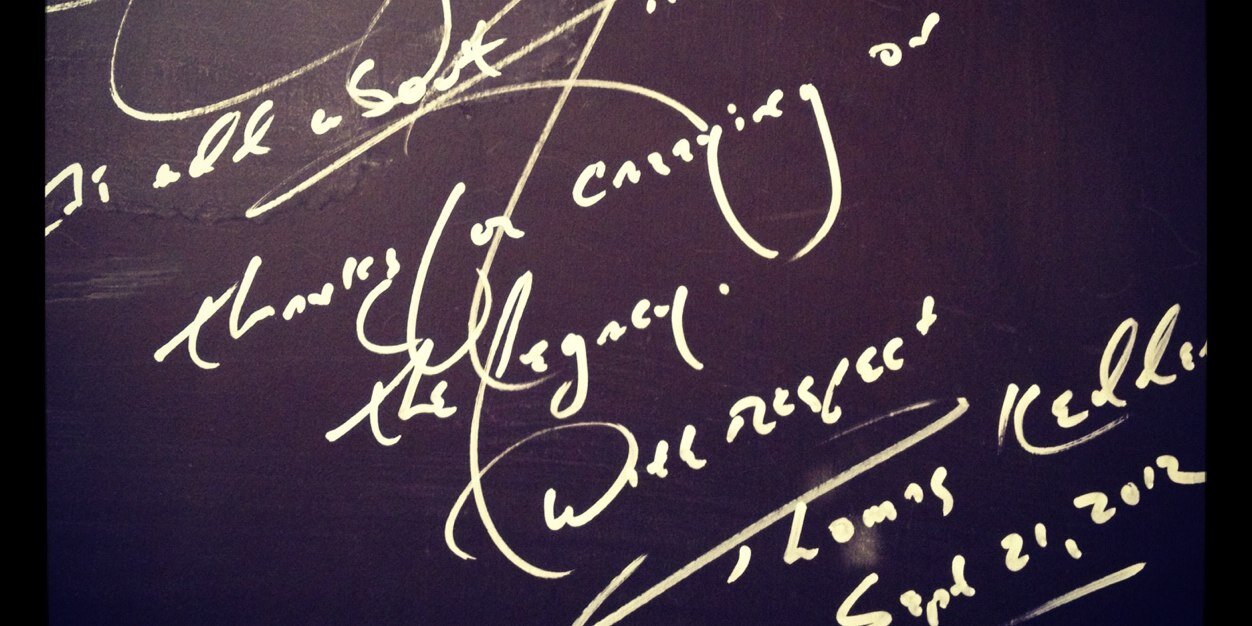 all about
thanks for carrying on
the legacy.
With respect
Thomas Keller
Sept 21, 2012